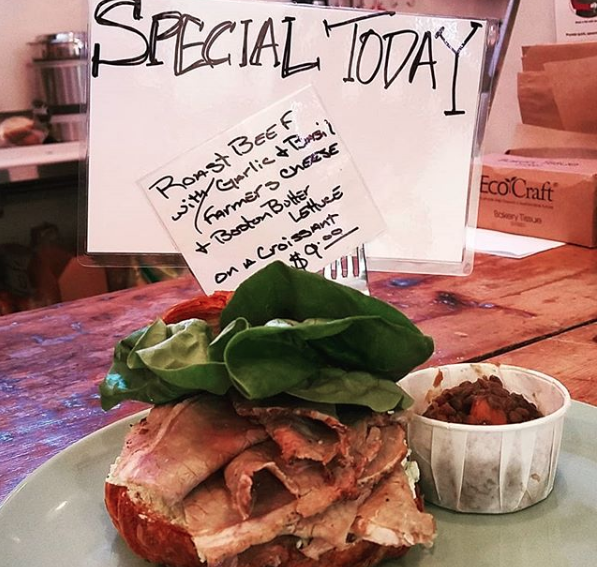 SPECIAL TODAY
ROAST BEEF
with Garlic + Basil
FARMERS CHEESE
+ Boston Butter
LETTUCE
on a Croissant
$9.00
EcoCraft
Bakery Tissue